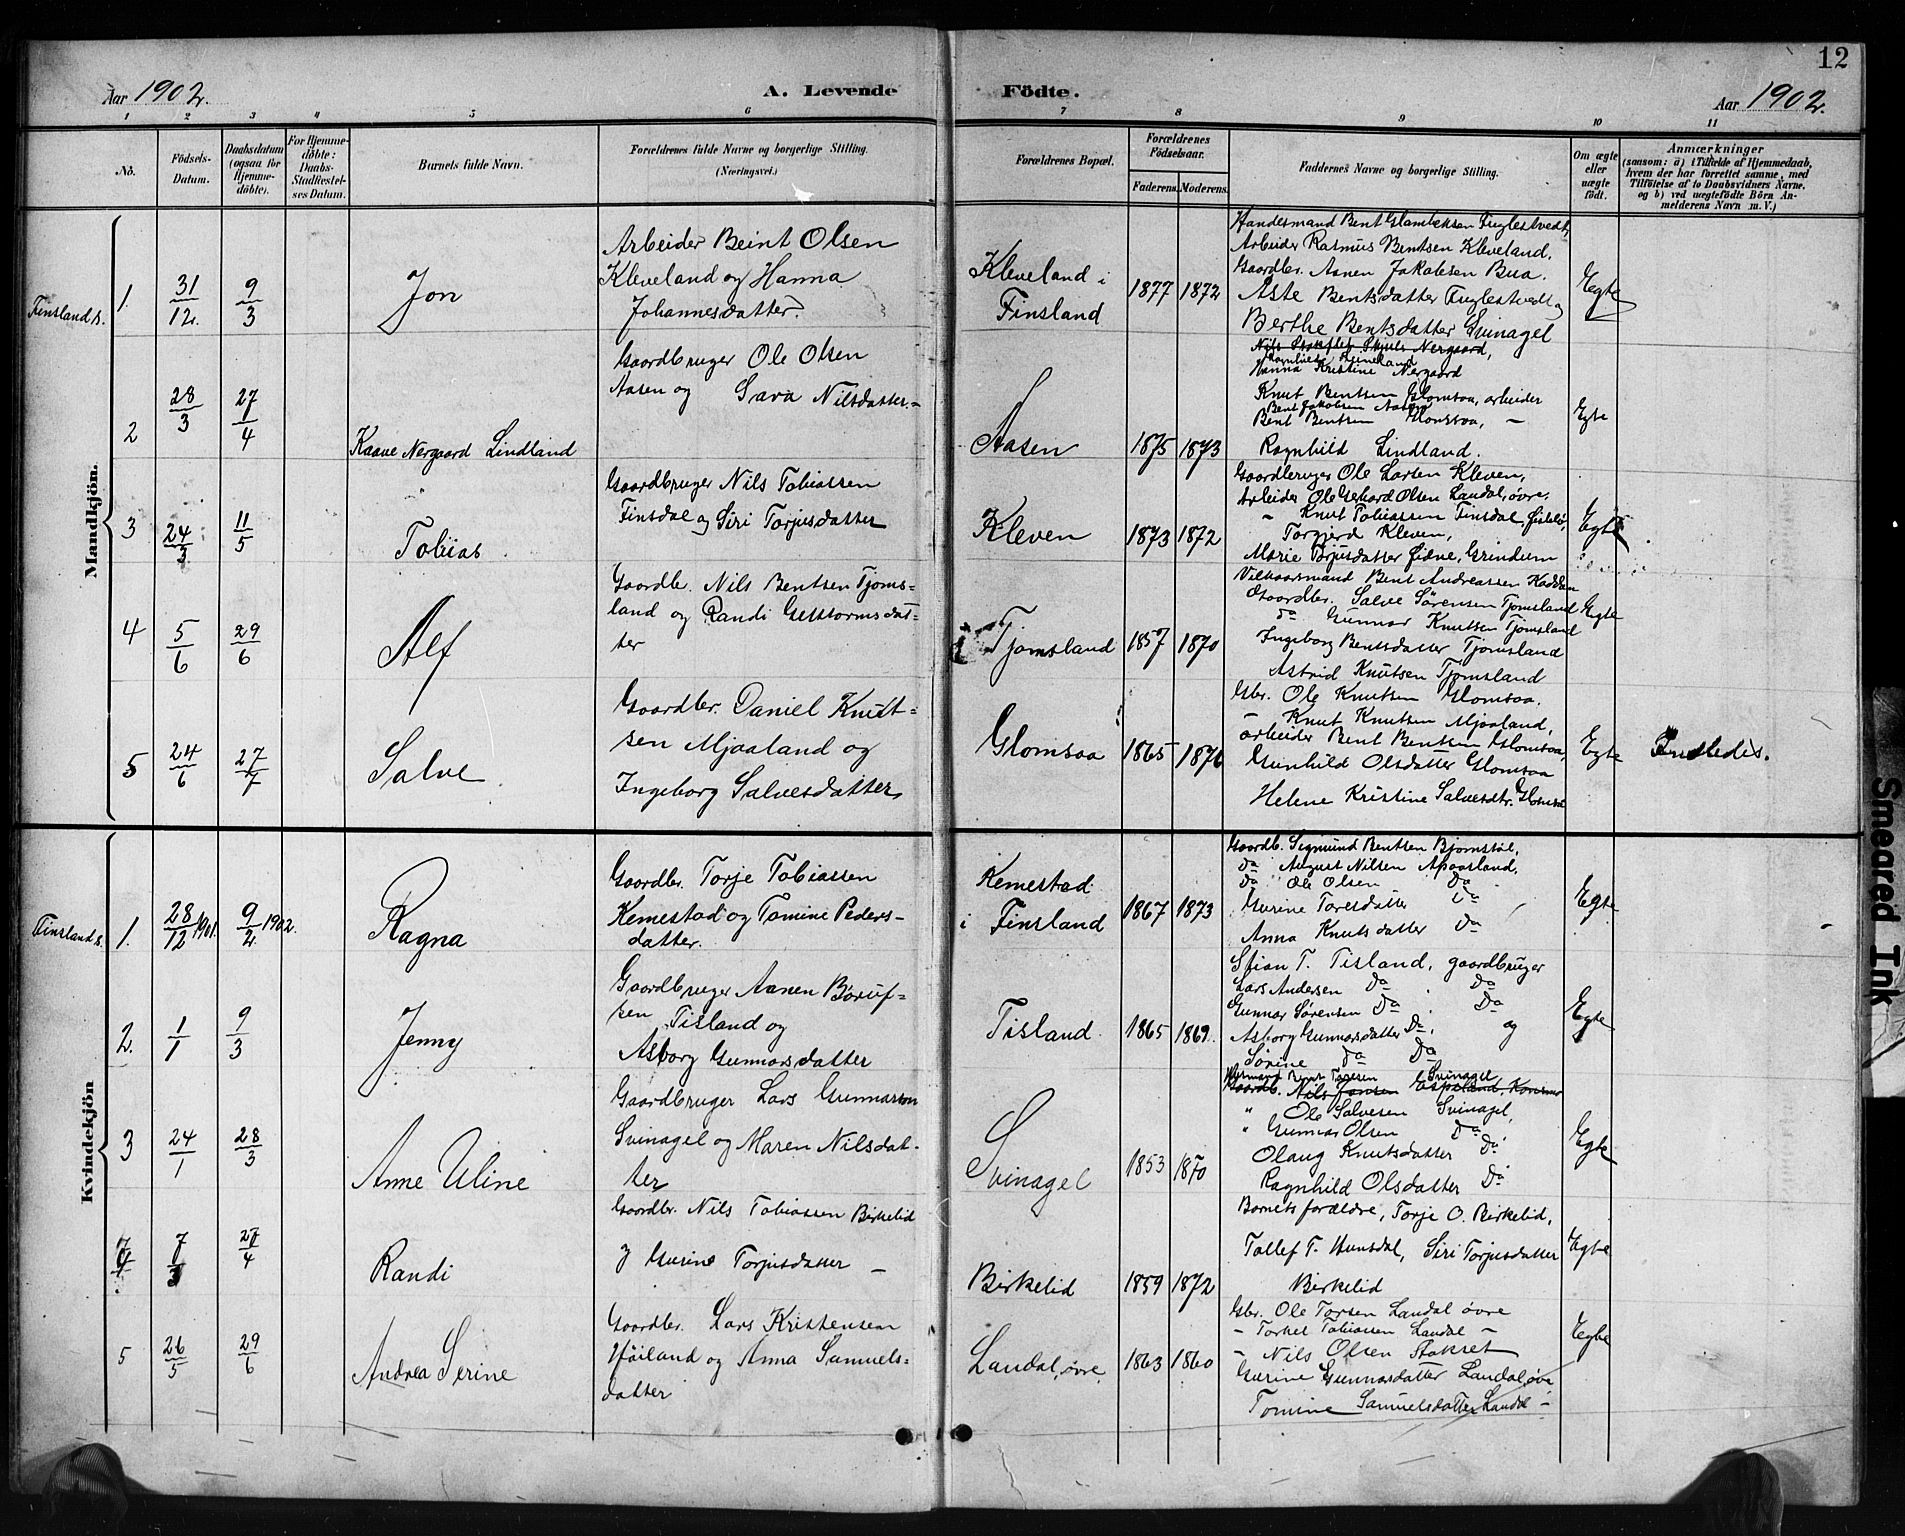 12
Aar 1902.
A. Levende Födte.
Aar 1902.
1 2 3 4 5 6 7 8 9 10 11
No.
Födsels-
Datum.
Daabsdatum
(ogsaa for
Hjemme-
döbte).
For Hjemme-
döbte:
Daabs-
Stadfæstel-
ses Datum.
Barnets fulde Navn.
Forældrenes fulde Navne og borgerlige Stilling.
(Næringsvei.)
Forældrenes Bopæl.
Forældrenes
Födselsaar.
Faderens. Moderens.
Faddernes Navne og borgerlige Stilling.
Om ægte
eller
uægte
födt.
Anmærkninger
(saasom: a) i Tilfælde af Hjemmedaab,
hvem der har forrettet samme, med
Tilföielse af to Daabsvidners Navne.
og b) ved uægtefödte Börn An-
melderens Navn m. V.)
Mandkjön.
Finsland s.
1. 31/12. 9/3
Jon
Arbeider Beint Olsen
Kleveland og Hanna
Johannesdatter.
Kleveland i
Finsland
1877 1872
Handesmand Bent Fuglestvedt,
Arbeider Rasmus Bentsen Kleveland,
Gaardbr. Aanen Jakobsen Bua.
Aste Bentsdatter Fuglestvedt og
Berthe Bentsdatter Svinagel
Egte
2 28/3 27/4
Kaave Nergaard Lindland
Gaardbruger Ole Olsen
Aasen og Sara Nilsdatter.-
Aasen
1875 1873
Nergaard,
Hanna Kristine Nergaard
Knut Bentsen Glomsaa, arbeider
Bent Jakobsen Aasen
Bent Bentsen Glomsaa, -
Ragnhild Lindland.
Egte
3 24/3 11/5
Tobias
Gaardbruger Nils Tobiassen
Finsdal og Siri Torjusdatter
Kleven
1873 1872
Gaardbruger Ole Larsen Kleven,
Arbeider Ole Gehard Olsen Landal, øvre,
- Knut Tobiassen Finsdal,
Torgjerd Kleven,
Marie Torjusdatter Eidne, Grindum
Egte
4 5/6 29/6
Alf
Gaardbr. Nils Bentsen Tjoms-
land og Randi Guttormsdat-
ter
i Tjomsland
1857 1870
Vilkaarsmand Bent Andreassen
Gaardbr. Salve Sørensen Tjomsland
do Gunnar Knutsen Tjomsland
Ingeborg Bentsdatter Tjomsland
Astrid Knutsen Tjomsland
Egte
5 24/6 27/7
Salve
Gaardbr. Daniel Knut-
sen Mjaaland og
Ingeborg Salvesdatter
Glomsaa
1865 1876
Gbr. Ole Knutsen Glomsaa.
- Knut Knutsen Mjaaland,
arbeider Bent Bentsen Glomsaa,
Gunhild Olsdatter Glomsaa
Helene Kristine Salvesdtr. Glomsaa
Egte
Kvindekjön
Finsland s.
1. 28/12 1901. 9/2 1902.
Ragna
Gaardbr. Torje Tobiassen
Kemestad og Tomine Peders-
datter.
Kemestad
i Finsland
1867 1873
Gaardb. Sigmund Bentsen Bjørnstøl,
Do August Nilsen
Do Ole Olsen Do
Gurine Toresdatter Do
Anna Knutsdatter Do
Egte
2. 1/1 9/3
Jenny
Gaardbruger Aanen Børuf-
sen Tisland og
Asborg Gunnarsdatter
Tisland
1865 1869.
Stian T. Tisland, gaardbruger
Lars Andersen Do Do
Gunnar Sørensen Do Do
Asborg Gunnarsdatter Do, og
Sørine Do Do
Egte
3 24/1 28/3
Anne Uline
Gaardbruger Lars Gunnarson
Svinagel og Maren Nilsdat-
ter
Svinagel
1853 1870
Bent Toresen Svinagel,
Gaardb. Nils Jonsen Espeland,
" Ole Salvesen Svinagel,
" Gunnar Olsen Do,
Olaug Knutsdatter Do
Ragnhild Olsdatter Do
Egte
4 7/3 27/4
Randi
Gaardbr. Nils Tobiassen Birkelid
og Gurine Torjusdatter -
Birkelid
1859 1872
Barnets forældre, Torje O. Birkelid,
Tollef T. Hunsdal, Siri Torjusdatter
Birkelid
Egte
5 26/5 29/6
Andrea Serine
Gaardbr. Lars Kristensen
Høiland og Anna Samuels-
datter
Landal, øvre,
1863 1860
Gbr. Ole Torsen Landal øvre
- Torkel Tobiassen Landal -
- Nils Olsen Stokset
Gurine Gunnarsdatter Landal, øvre
Tomine Samuelsdatter Landal -
Egte
Smeared Ink